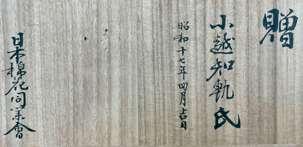 贈
小越知軌氏
昭和十七年四月吉日
日本棉花同業會